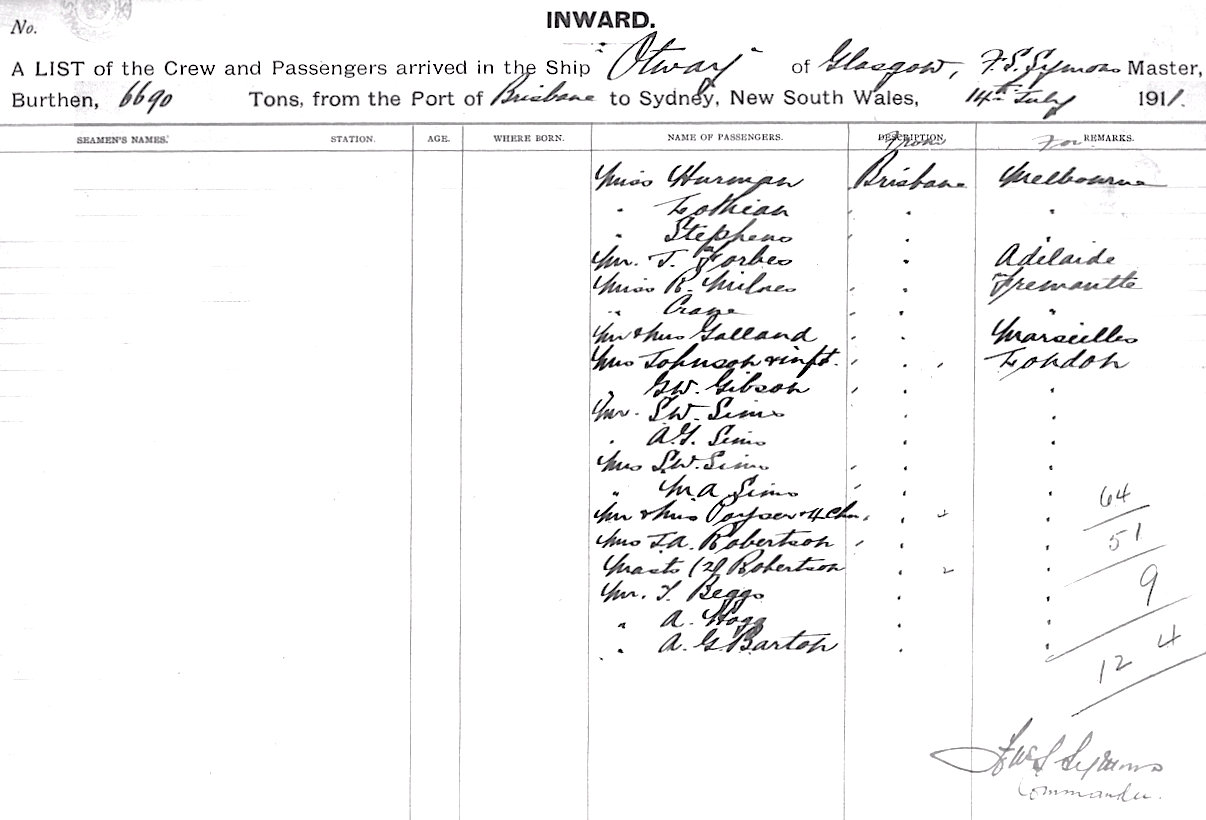 No.
INWARD.
A LIST of the Crew and Passengers arrived in the Ship "Otway" of Glasgow, F.S. Symons Master,
Burthen, 6690 Tons, from the Port of Brisbane to Sydney, New South Wales, 14th July 1911.
SEAMEN'S NAMES. STATION. AGE. WHERE BORN. NAME OF PASSENGERS. DESCRIPTION. From For REMARKS.
Miss Hurman Brisbane Melbourne
" Lothian " "
" Stephens " "
Mr. J. Forbes " Adelaide
Miss R. Milnes " Fremantle
" Crane " "
Mr & Mrs Galland " Marseilles
Mrs Johnson & inft. " London
" G.W. Gibson " "
Mr. S.W. Sims " "
" A.G. Sims " "
Mrs S.W. Sims " "
" M A Sims " "
Mr & Mrs Poyser & 4 Chn " 4 "
Mrs J.A. Robertson " "
Masts (2) Robertson " 2 "
Mr. T. Beggs " "
" A. Hogg " "
" A.G. Barton " "
64
51
9
12 4
Symons
Commander.